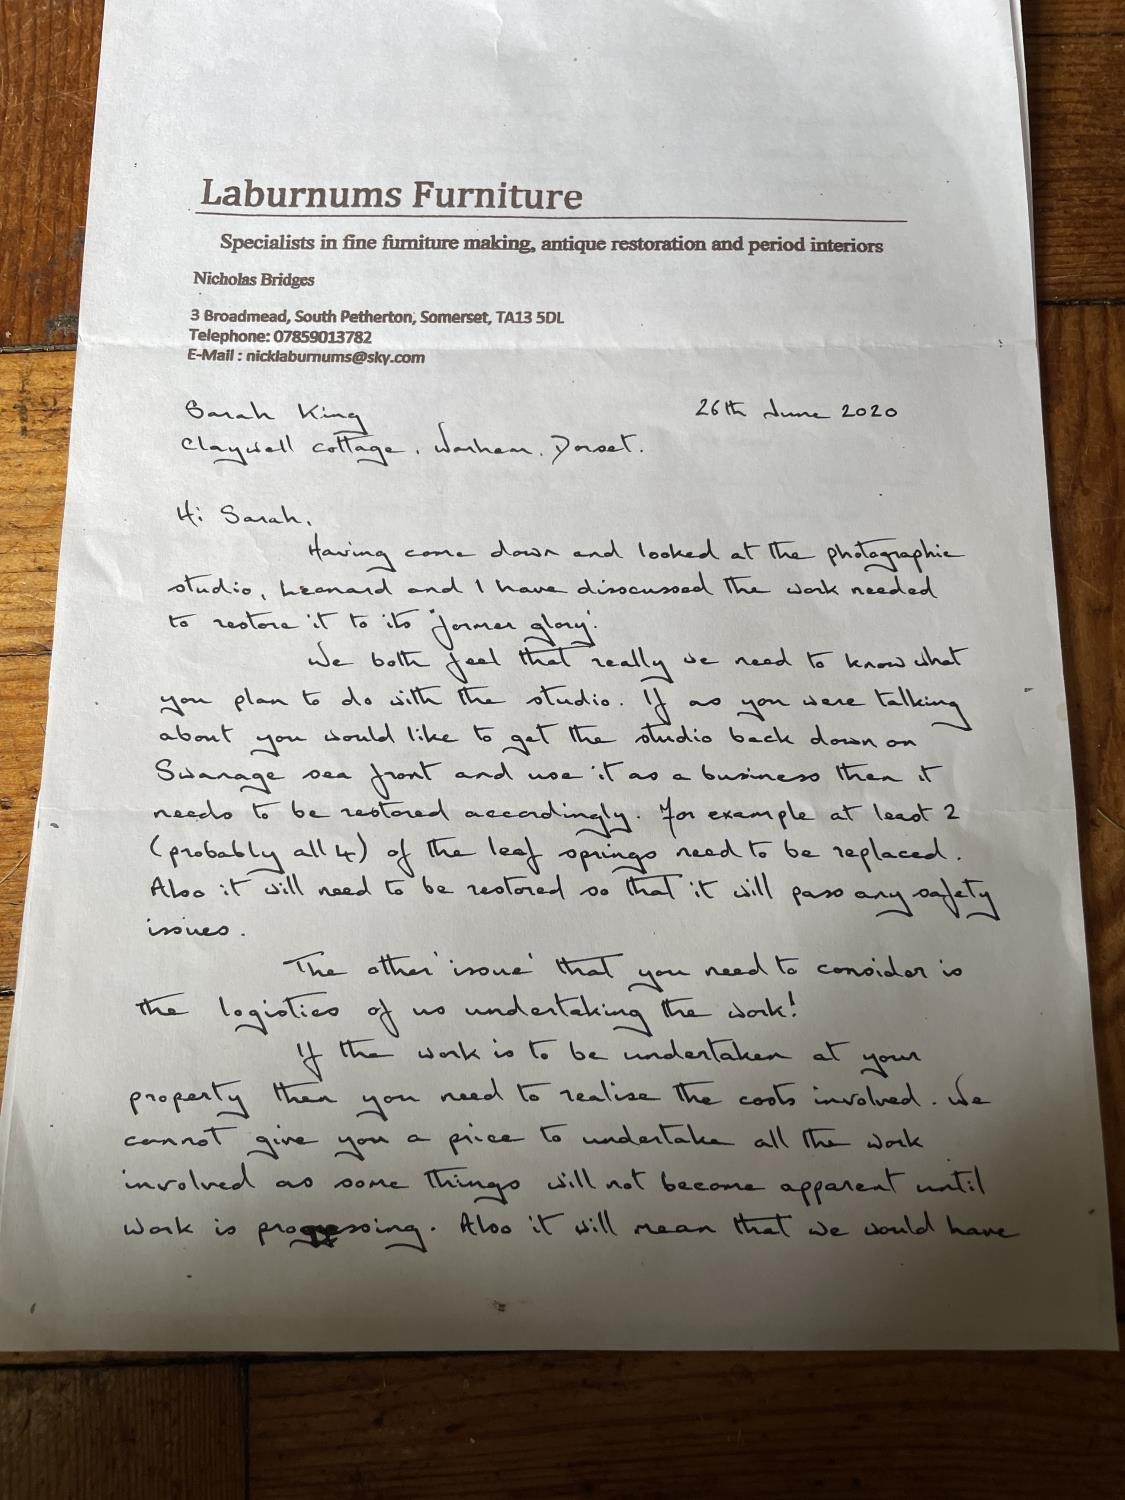 Laburnums Furniture
Specialists in fine furniture making, antique restoration and period interiors
Nicholas Bridges
3 Broadmead, South Petherton, Somerset, TA13 5DL
Telephone: 07859013782
E-Mail : nicklaburnums@sky.com
Sarah King
26th June 2020
Claywell Cottage, Warham, Dorset.
Hi Sarah,
Having come down and looked at the photographic
studio, Leonard and I have disscussed the work needed
to restore it to its 'former glory'.
We both feel that really we need to know what
you plan to do with the studio. If as you were talking
about you would like to get the studio back down on
Swanage sea front and use it as a business then it
needs to be restored accordingly. For example at least 2
(probably all 4) of the leaf springs need to be replaced.
Also it will need to be restored so that it will pass any safety
issues.
The other 'issue' that you need to consider is
the logistics of us undertaking the work!
If the work is to be undertaken at your
property then you need to realise the costs involved. We
cannot give you a price to undertake all the work
involved as some things will not become apparent until
work is progressing. Also it will mean that we would have